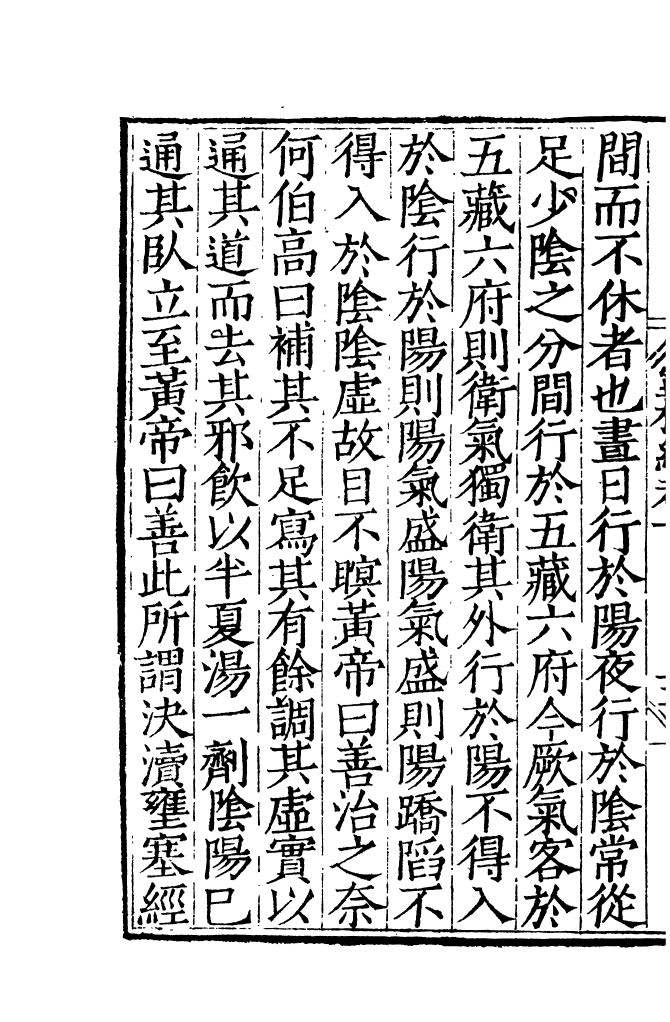 間而不休者也晝日行於陽夜行於陰常從
足少陰之分間行於五藏六府今厥氣客於
五藏六府則衛氣獨衛其外行於陽不得入
於陰行於陽則陽氣盛陽氣盛則陽蹻䧟不
得入於陰陰虛故目不瞑黃帝曰善治之奈
何伯高曰補其不足寫其有餘調其虛實以
通其道而去其邪飲以半夏湯一劑陰陽已
通其臥立至黃帝曰善此所謂決瀆壅塞經